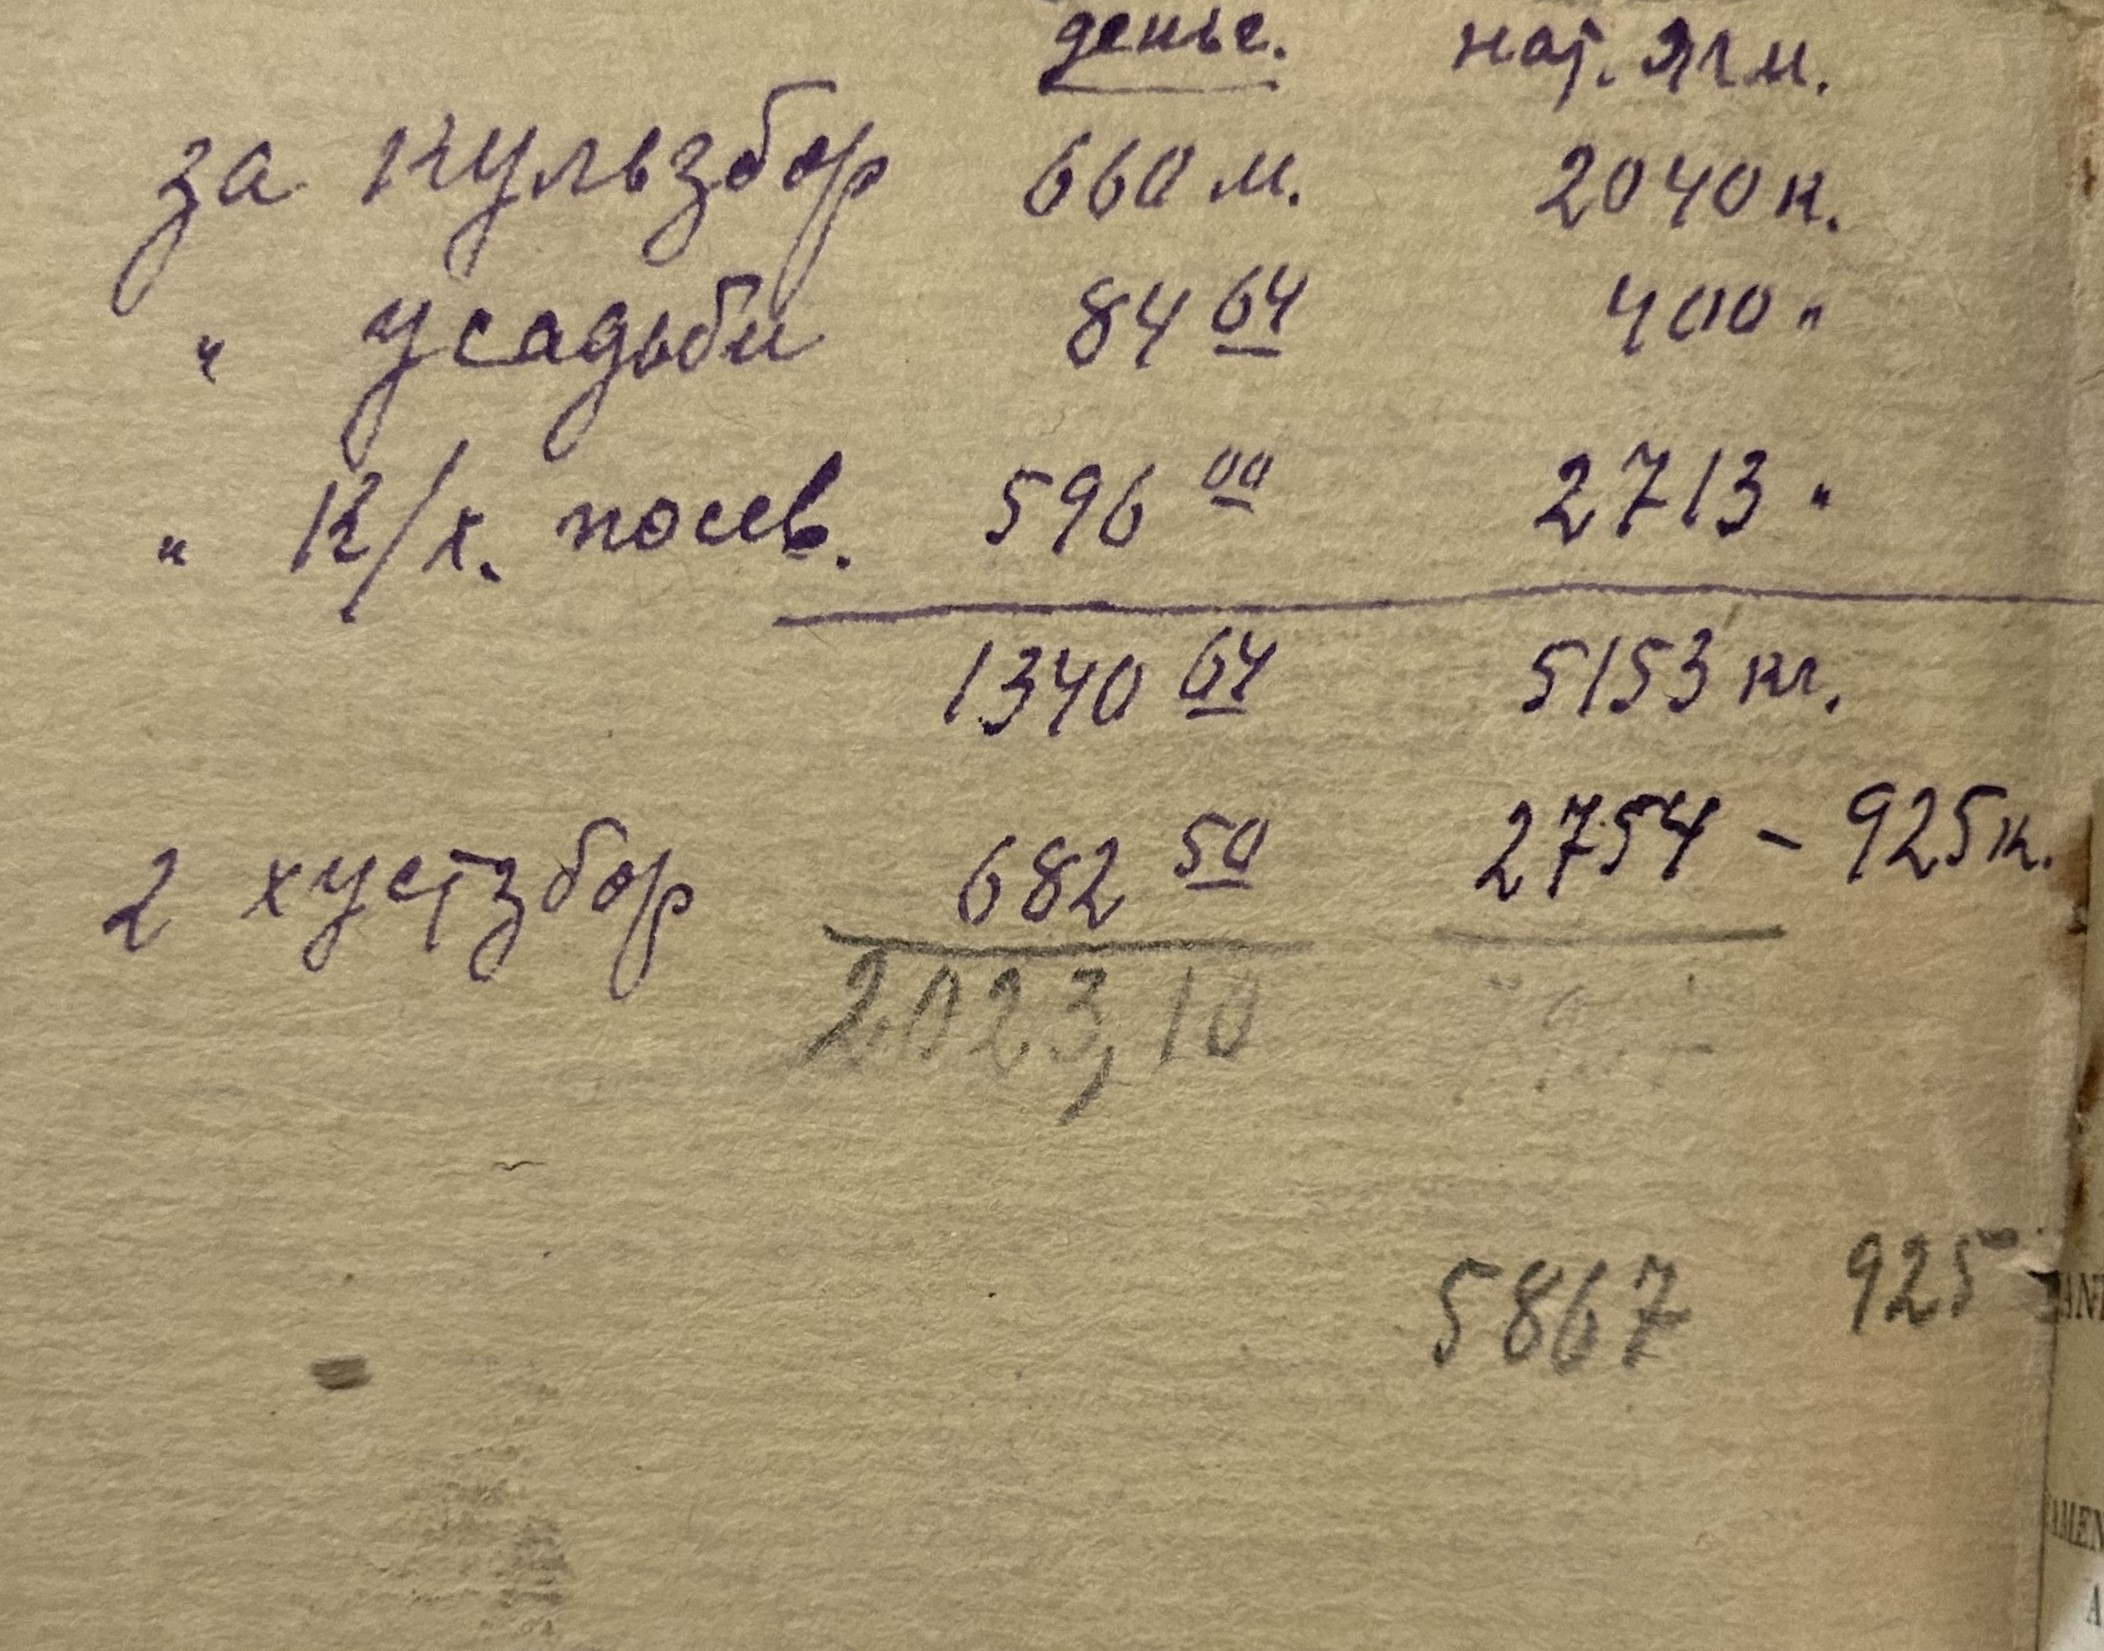 деньг. нат. ячм.
за культзбор 660 м. 2040 к.
" усадьби 84 64 400 "
" К/х. посев. 596 00 2713 "
1340 64 5153 кг.
2 хустзбор 682 50 2754 - 925 к.
2023,10
5867 925